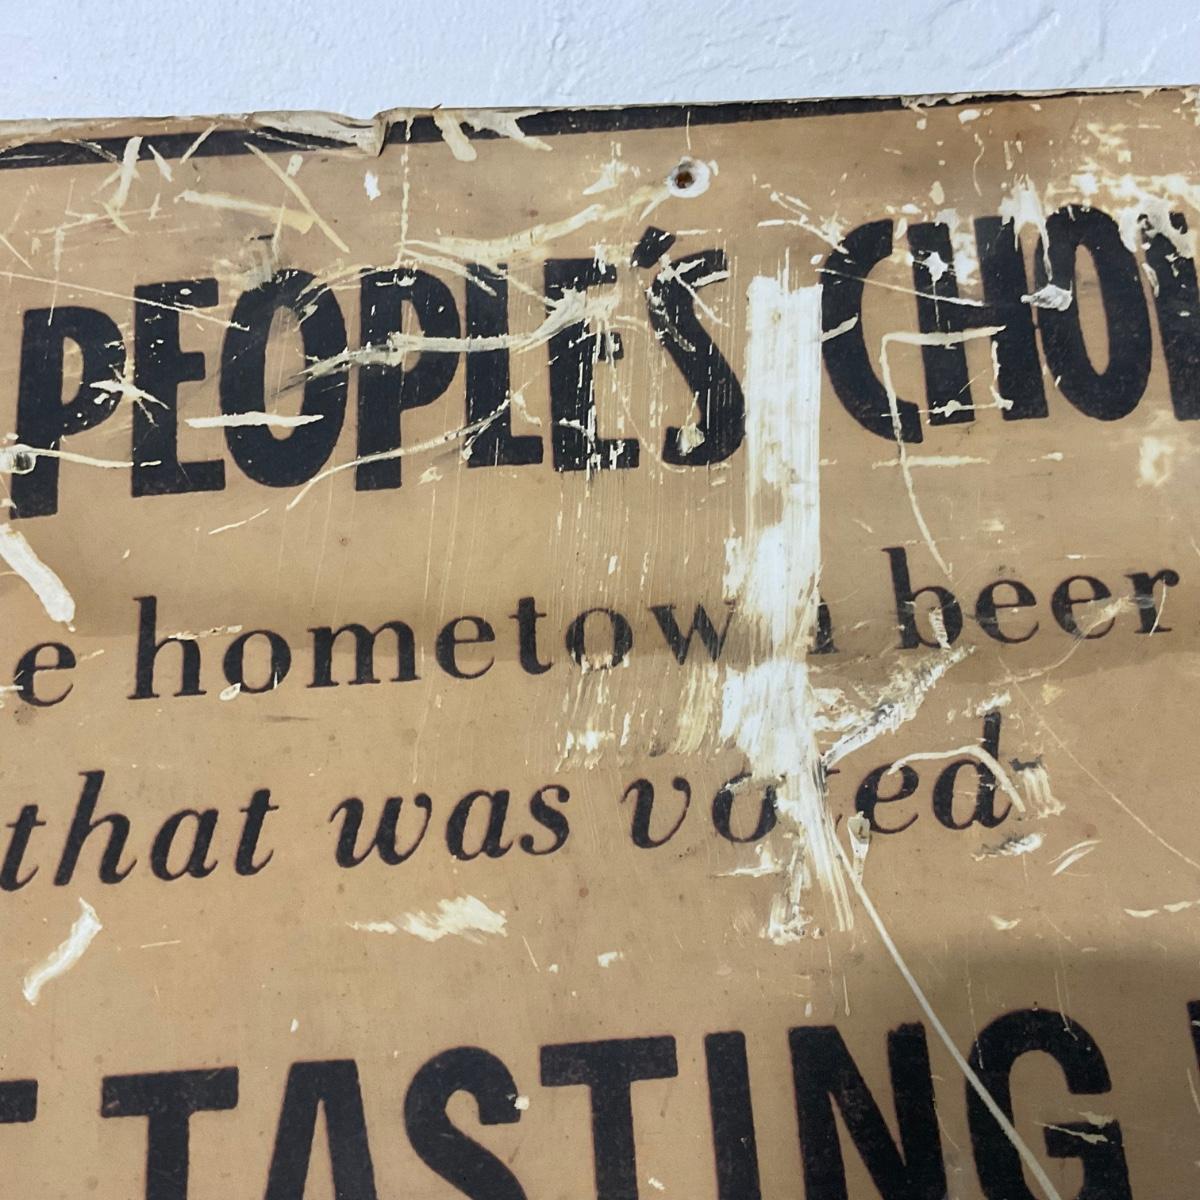 PEOPLE'S CHOI
e hometown beer
that was voted
T TASTING